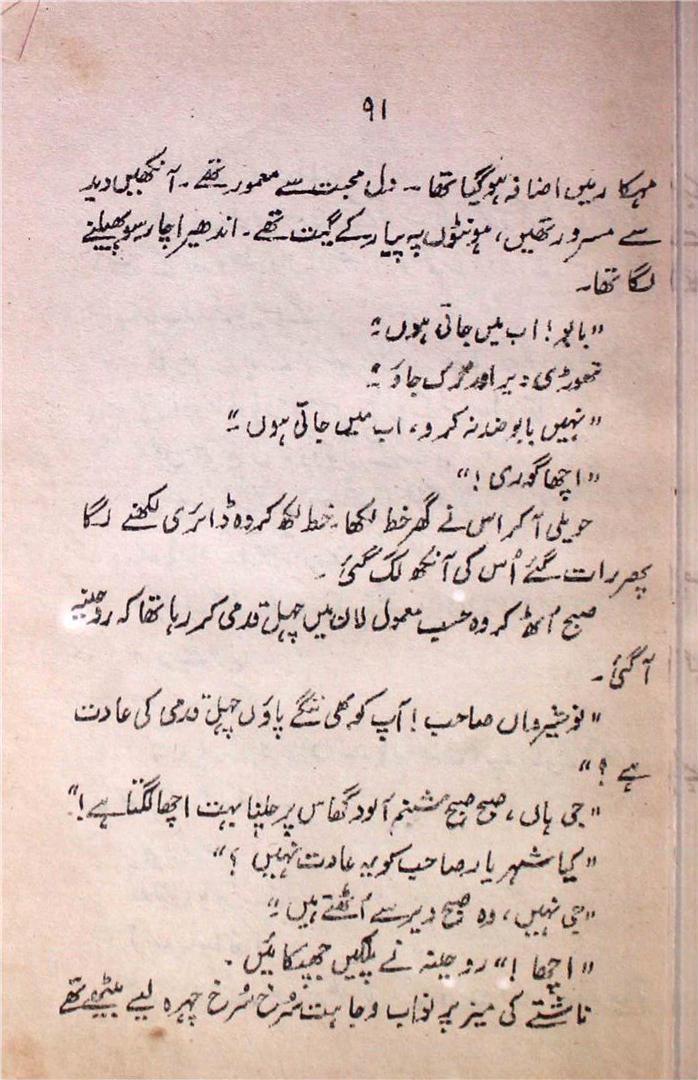 ۹۱
مہکار میں اضافہ ہوگیا تھا۔ دل محبت سے معمور تھے۔ آنکھیں دید
سے مسرور تھیں، ہونٹوں پہ پیار کے گیت تھے۔ اندھیرا چار سو پھیلنے
لگا تھا۔
"بابو! اب میں جاتی ہوں۔"
تھوڑی دیر اور رُک جاؤ۔"
"نہیں بابو ضد نہ کرو، اب میں جاتی ہوں۔"
"اچھا گوری!"
حویلی آ کر اس نے گھر خط لکھا۔ خط لکھ کر وہ ڈائری لکھنے لگا
پھر رات گئے اُس کی آنکھ لگ گئی۔
صبح اُٹھ کر وہ حسبِ معمول لان میں چہل قدمی کر رہا تھا کہ روحینہ
آ گئی۔
"نوشیرواں صاحب! آپ کو بھی ننگے پاؤں چہل قدمی کی عادت
ہے؟"
"جی ہاں، صبح صبح شبنم آلود گھاس پر چلنا بہت اچھا لگتا ہے!"
"کیا شہر یار صاحب کو یہ عادت نہیں؟"
"جی نہیں، وہ صبح دیر سے اُٹھتے ہیں۔"
"اچھا!" روحینہ نے پلکیں جھپکائیں۔
ناشتے کی میز پر نواب وجاہت سُرخ سُرخ چہرہ لیے بیٹھے تھے